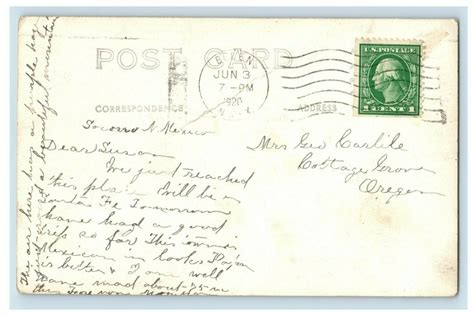 POST CARD
CORRESPONDENCE
ADDRESS
JUN 3
7-PM
1920
U.S. POSTAGE
1 CENT 1
Socorro N. Mexico
Dear Susan
We just reached
this place Will be in
Santa Fe Tomorrow
have had a good
trip so far This town is
Mexican in looks
is better I am well
made about 75 m
this
The air here has a purple haze
and a beautiful mountain
Mrs Geo Carlile
Cottage Grove
Oregon